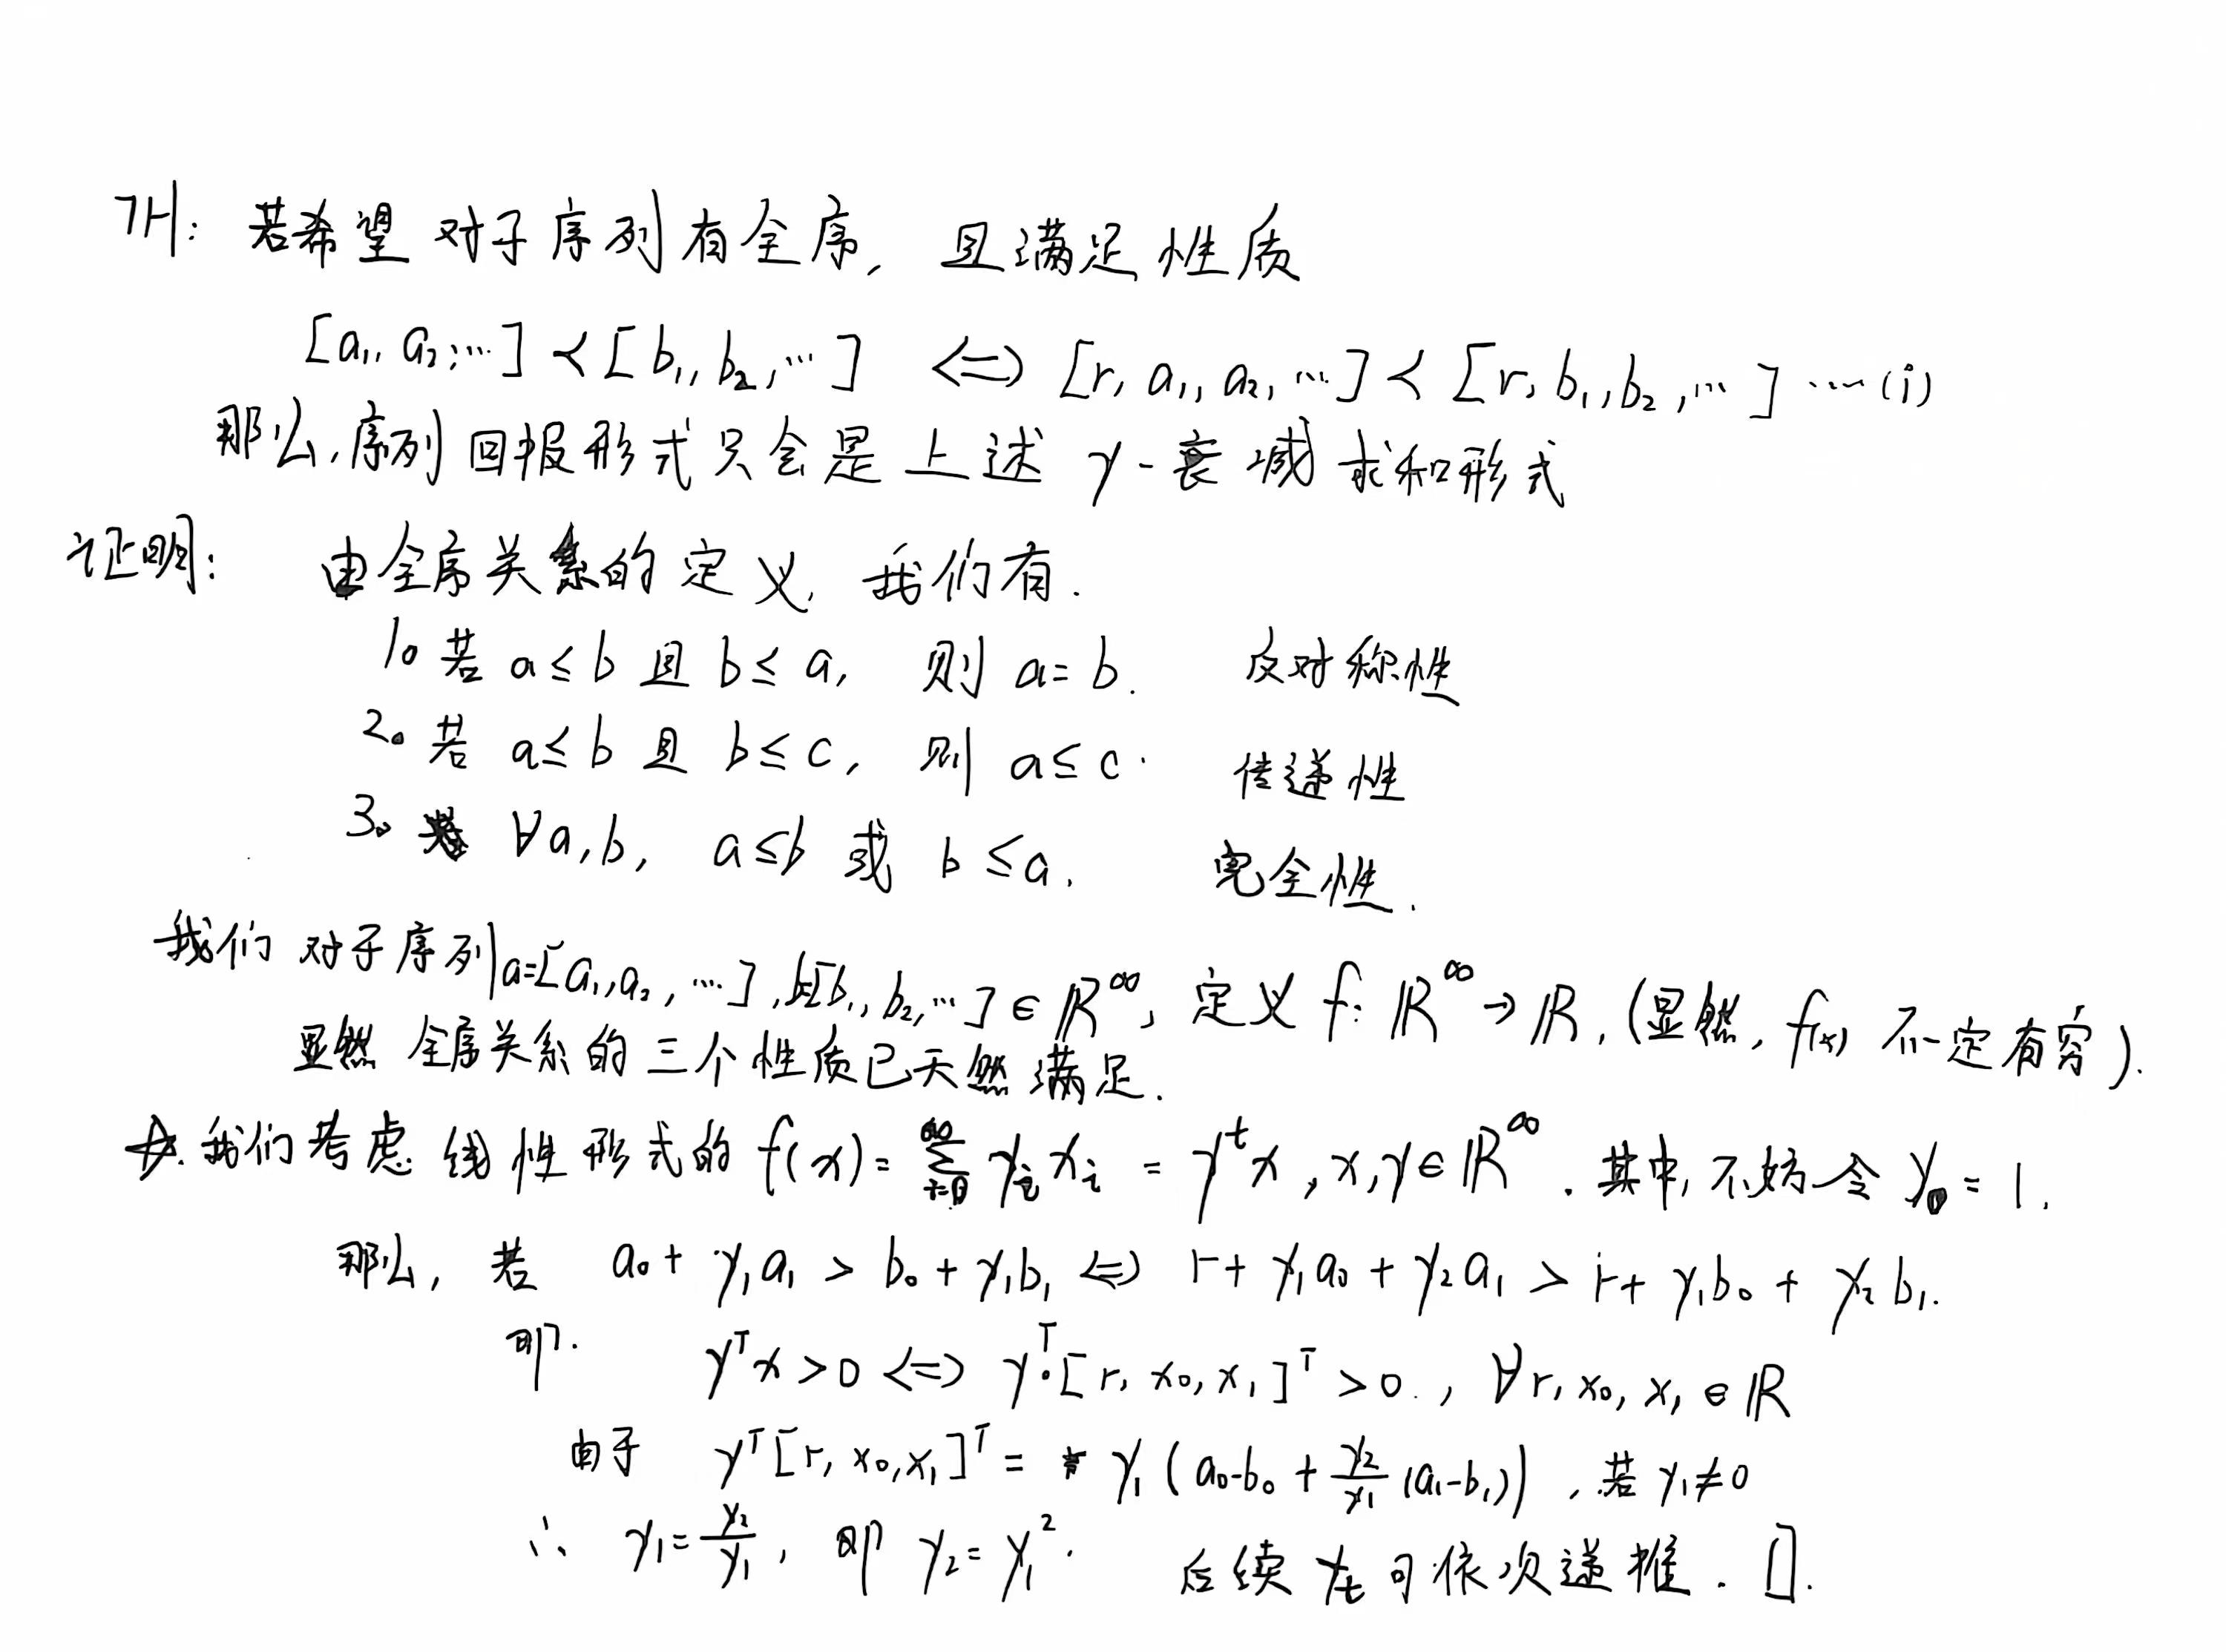 TH: 若希望对于序列有全序, 且满足性质
[a₁, a₂, …] ≺ [b₁, b₂, …] ⟺ [r, a₁, a₂, …] ≺ [r, b₁, b₂, …] ……(i)
那么,序列回报形式只会是上述 γ-衰减求和形式
证明: 由全序关系的定义, 我们有.
1。若 a≤b 且 b≤a, 则 a=b. 反对称性
2。若 a≤b 且 b≤c, 则 a≤c. 传递性
3。∀a,b, a≤b 或 b≤a. 完全性.
我们对于序列 a=[a₁,a₂,…], b=[b₁,b₂,…] ∈ ℝ^∞, 定义 f: ℝ^∞→ℝ. (显然, f(x) 不一定有穷).
显然全序关系的三个性质已天然满足.
我们考虑线性形式的 f(x)= ∑_{i=0}^{∞} γᵢxᵢ = γᵗx, x,γ∈ℝ^∞. 其中,不妨令 γ₀=1.
那么, 若 a₀+γ₁a₁ > b₀+γ₁b₁ ⟺ r+γ₁a₀+γ₂a₁ > r+γ₁b₀+γ₂b₁.
即. γᵀx>0 ⟺ γᵀ·[r, x₀, x₁]ᵀ>0., ∀r, x₀, x₁∈ℝ
由于 γᵀ[r, x₀,x₁]ᵀ = γ₁(a₀-b₀+\frac{γ₂}{γ₁}(a₁-b₁)), 若 γ₁≠0
∴ γ₁=\frac{γ₂}{γ₁}, 即 γ₂=γ₁². 后续 γₜ 可依次递推. □.